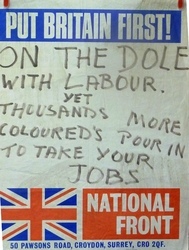 PUT BRITAIN FIRST!
ON THE DOLE
WITH LABOUR.
YET
THOUSANDS MORE
COLOURED'S POUR IN
TO TAKE YOUR
JOBS
NATIONAL
FRONT
50 PAWSONS ROAD, CROYDON, SURREY, CR0 2QF.